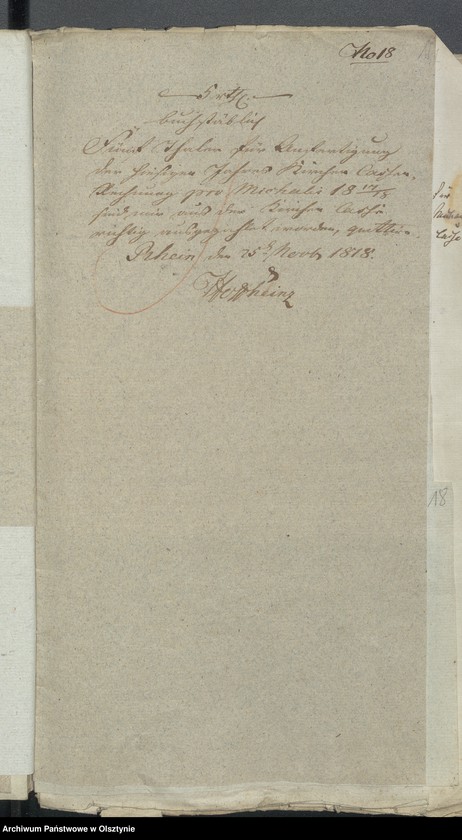 No 18
5 rtl.
buchstäblich
Fünf Thaler für Anfertigung
der hiesigen Jahres Kirchen Cassen-
Rechnung pro Michaeli 18 17/18
sind mir aus der Kirchen Casse
richtig ausgezahlt worden, quittire.
Rhein den 25t Novb 1818.
Hoffheinz
18
Archiwum Państwowe w Olsztynie